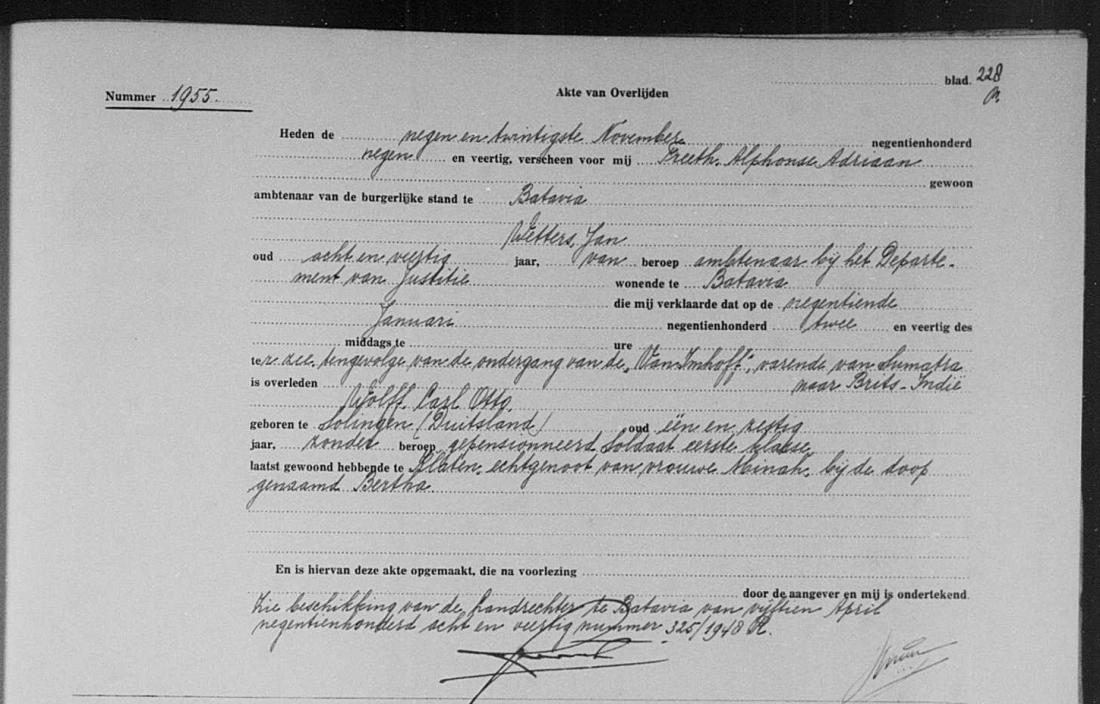 blad. 228
Nummer 1955.
Akte van Overlijden
Heden de negen en twintigste November negentienhonderd
negen en veertig, verscheen voor mij Alphonse Adriaan
gewoon
ambtenaar van de burgerlijke stand te Batavia
Wetters, Jan
oud acht en veertig jaar, van beroep ambtenaar bij het Departe-
ment van Justitie wonende te Batavia
die mij verklaarde dat op de negentiende
Januari negentienhonderd twee en veertig des
middags te ure
te r zee, tengevolge van de ondergang van de "Van Imhoff", varende van Sumatra
is overleden naar Brits-Indië
Wolff, Carl Otto,
geboren te Solingen (Duitsland) oud één en zestig
jaar, zonder beroep gepensionneerd soldaat eerste klasse,
laatst gewoond hebbende te Klaten, echtgenoot van vrouwe Minah, bij de doop
genaamd Bertha
En is hiervan deze akte opgemaakt, die na voorlezing
door de aangever en mij is ondertekend.
Zie beschikking van de Landrechter te Batavia van vijftien April
negentienhonderd acht en veertig nummer 325/1948 R.